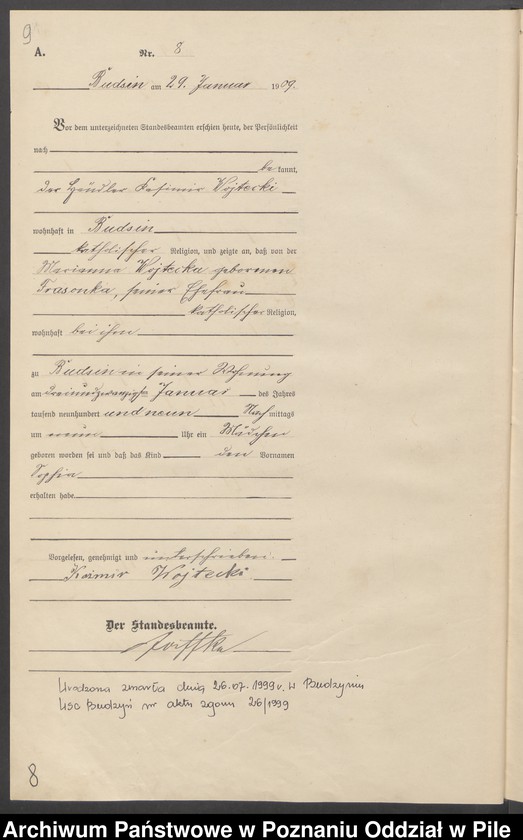 9
A.
Nr. 8
Budsin am 29. Januar 1909.
Vor dem unterzeichneten Standesbeamten erschien heute, der Persönlichkeit
nach
bekannt,
der Händler Kasimir Wojtecki
wohnhaft in Budsin
katholischer Religion, und zeigte an, daß von der
Marianna Wojtecka geborenen
Trasonka, seiner Ehefrau
katholischer Religion,
wohnhaft bei ihm
zu Budsin in seiner Wohnung
am dreiundzwanzigsten Januar des Jahres
tausend neunhundert und neun Nachmittags
um neun Uhr ein Mädchen
geboren worden sei und daß das Kind den Vornamen
Sophia
erhalten habe.
Vorgelesen, genehmigt und unterschrieben.
Wojtecki
Der Standesbeamte.
Urodzona zmarła dnia 26.07.1999 r. w Budzyniu
USC Budzyń nr aktu zgonu 26/1999
8
Archiwum Państwowe w Poznaniu Oddział w Pile